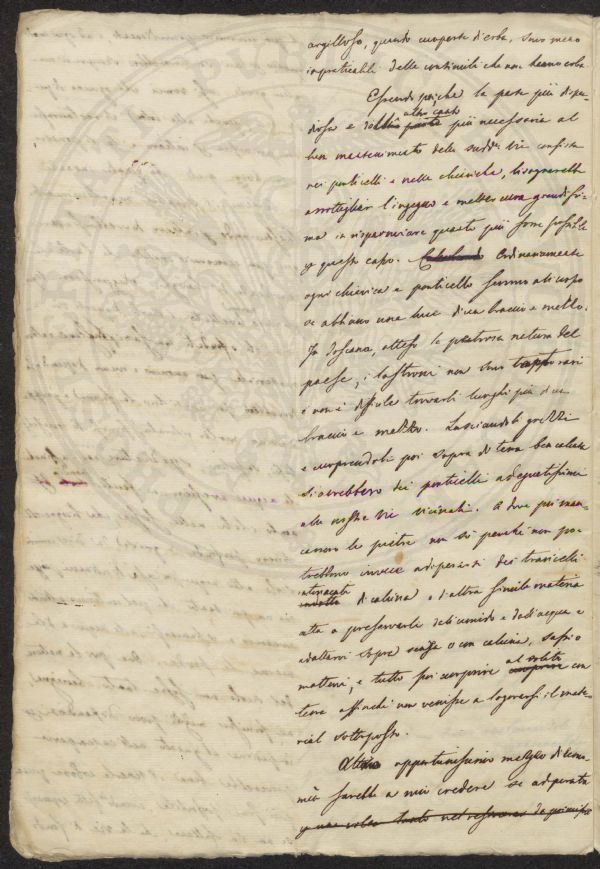 argilloso, quando coperte d'erba, sono meno
impraticabili delle continuità che non hanno erba
Essendo poiche la parte più dispen-
altro capo
diosa e dall' più necessaria al
buon mantenimento delle sudd. Vie consista
nei ponticelli e nelle chiaviche, bisognerebbe
assottigliar l'ingegno e metter cura grandissi-
ma in risparmiare quanto più fosse possibile
questo capo. Ordinariamente
ogni chiavica e ponticello
se abbiano una luce di un braccio e mezzo.
In Toscana, atteso la petrosa natura del
paese, i lastroni non sono troppo rari
e non è difficile trovarli lunghi più di un
braccio e mezzo. Lasciandoli grezzi
e coprendoli poi sopra di terra ben calcata
si avrebbero dei ponticelli adequatissimi
alle nostre Vie vicinali. A dove poi man-
cassero le pietre non so perchè non po-
trebbero invece adoperarsi dei travicelli
intonacati
di calcina o d'altra simile materia
atta a preservarle dall'umido e dall'acqua e
adattarvi sopra scaglie o con calcina, sassi o
mattoni, e tutto poi coprire al solito con
terra affinchè non venisse a logorarsi il mate-
rial sottoposto.
Altro opportunissimo mezzo di econo-
mia sarebbe a mio credere se adoperata
una volta tanto nel da principio